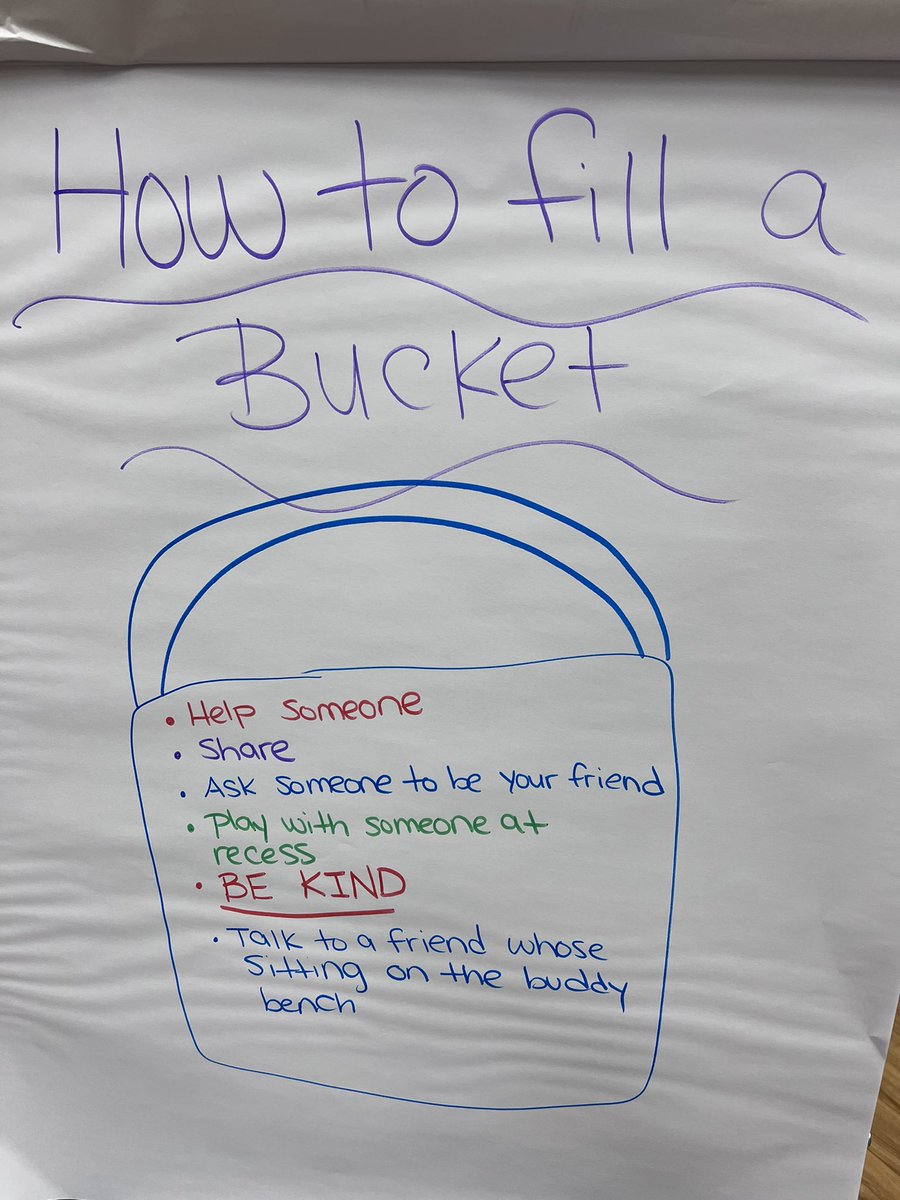 How to fill a
Bucket
• Help someone
• Share
• Ask someone to be your friend
• Play with someone at
recess
• BE KIND
• Talk to a friend whose
sitting on the buddy
bench